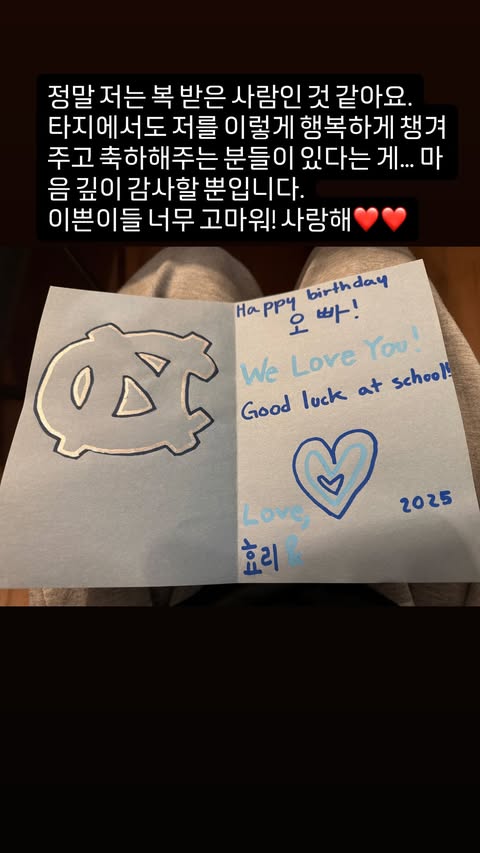 정말 저는 복 받은 사람인 것 같아요.
타지에서도 저를 이렇게 행복하게 챙겨
주고 축하해주는 분들이 있다는 게... 마
음 깊이 감사할 뿐입니다.
이쁜이들 너무 고마워! 사랑해❤️❤️
Happy birthday
오빠!
We Love You!
Good luck at school!
Love,
2025
효리
NC